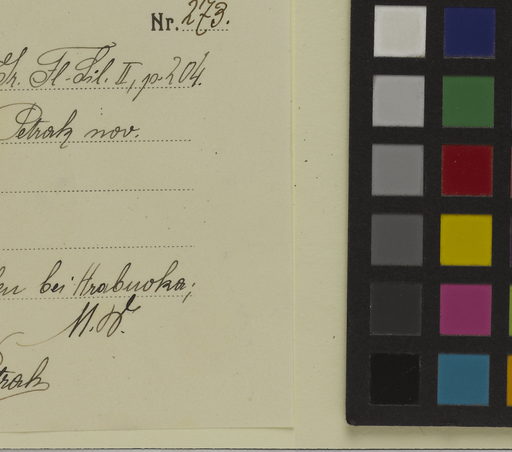 Nr. 273.
Fl. Sil. II, p. 204.
Petrak nov.
bei Hrabuvka,
M. W.
trak